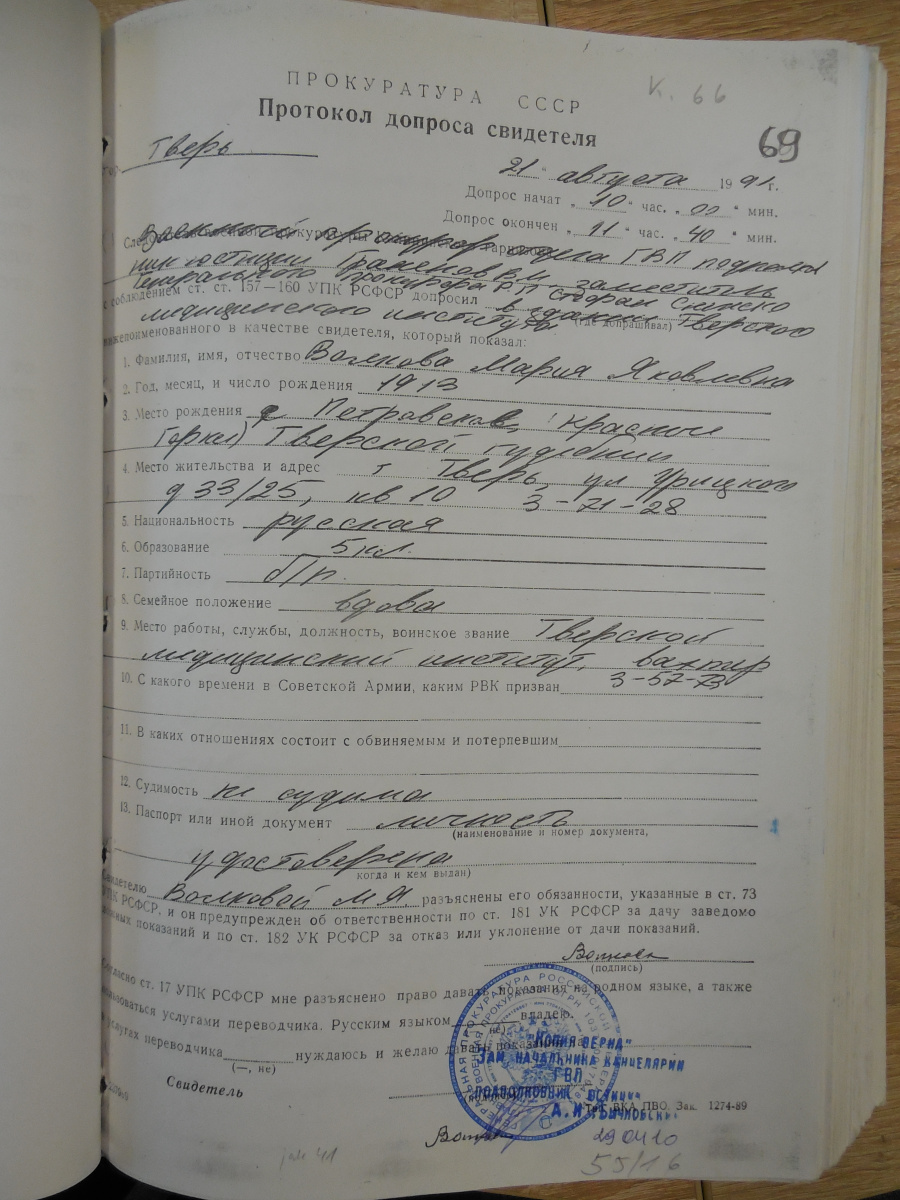 К. 66
ПРОКУРАТУРА СССР
Протокол допроса свидетеля
69
Тверь
"21" августа 1991 г.
Допрос начат "10" час. "00" мин.
Допрос окончен "11" час. "40" мин.
ГВП подполков
ник юстиции заместитель
Генерального прокурора
с соблюдением ст. ст. 157—160 УПК РСФСР допросил в здании Тверского
медицинского института (где допрашивал)
нижепоименованного в качестве свидетеля, который показал:
1. Фамилия, имя, отчество Волкова Мария Яковлевна
2. Год, месяц, и число рождения 1913
3. Место рождения с Петровское, (Красные
Горки) Тверской губернии
4. Место жительства и адрес г Тверь, ул Урицкого
д 33/25, кв 10 3-71-28
5. Национальность русская
6. Образование 5 кл.
7. Партийность б/п.
8. Семейное положение вдова
9. Место работы, службы, должность, воинское звание Тверской
медицинский институт, вахтер
10. С какого времени в Советской Армии, каким РВК призван 3-57-73
11. В каких отношениях состоит с обвиняемым и потерпевшим
12. Судимость не судима
13. Паспорт или иной документ личность
(наименование и номер документа,
удостоверена
когда и кем выдан)
Свидетелю Волковой М Я разъяснены его обязанности, указанные в ст. 73
УПК РСФСР, и он предупрежден об ответственности по ст. 181 УК РСФСР за дачу заведомо
ложных показаний и по ст. 182 УК РСФСР за отказ или уклонение от дачи показаний.
Волкова
(подпись)
Согласно ст. 17 УПК РСФСР мне разъяснено право давать показания на родном языке, а также
пользоваться услугами переводчика. Русским языком владею.
услугах переводчика нуждаюсь и желаю давать показания на
(—, не)
Свидетель
"КОПИЯ ВЕРНА"
ЗАМ. НАЧАЛЬНИКА КАНЦЕЛЯРИИ
ГВП
ПОДПОЛКОВНИК ЮСТИЦИИ
Тип. ВКА ПВО. Зак. 1274-89
29 04 10
55/16